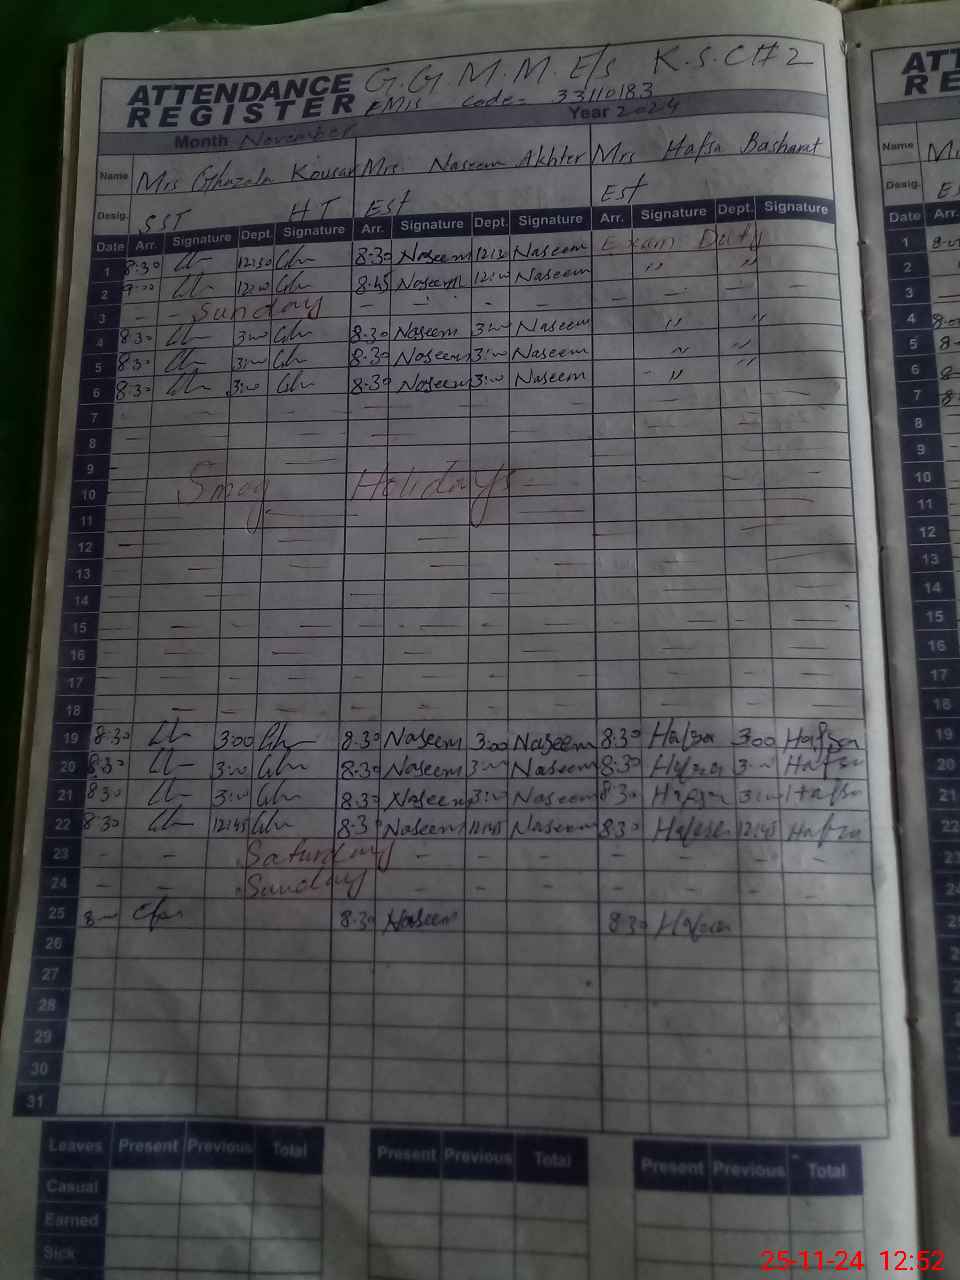 ATTENDANCE REGISTER G.G M.M E/s K.S.C#2
EMIS code= 33110183
Month November Year 2024
Name Mrs Ghazala Kousar Mrs. Naseem Akhter Mrs Hafsa Basharat
Desig. SST HT Est Est
Date Arr. Signature Dept. Signature Arr. Signature Dept. Signature Arr. Signature Dept. Signature
1 8:30 12:30 8:30 Naseem 12:30 Naseem Exam Duty
2 9:00 12:00 8:45 Naseem 12:00 Naseem " "
3 - - Sunday - - - - - - - -
4 8:30 3:00 8:30 Naseem 3:00 Naseem " "
5 8:30 3:00 8:30 Naseem 3:00 Naseem " "
6 8:30 3:00 8:30 Naseem 3:00 Naseem " "
7
8
9
10 Smog Holidays
11
12
13
14
15
16
17
18
19 8:30 3:00 8:30 Naseem 3:00 Naseem 8:30 Hafsa 3:00 Hafsa
20 8:30 3:00 8:30 Naseem 3:00 Naseem 8:30 Hafsa 3:00 Hafsa
21 8:30 3:00 8:30 Naseem 3:00 Naseem 8:30 Hafsa 3:00 Hafsa
22 8:30 12:45 8:30 Naseem 12:45 Naseem 8:30 Hafsa 12:45 Hafsa
23 - - Saturday - - - - - -
24 - - Sunday - - - - - -
25 8:00 8:30 Naseem 8:30 Hafsa
26
27
28
29
30
31
Leaves Present Previous Total Present Previous Total Present Previous Total
Casual
Earned
Sick
Name
Desig.
Date Arr.
1
2
3
4
5
6
7
8
9
10
11
12
13
14
15
16
17
18
19
20
21
22
23
25-11-24 12:52